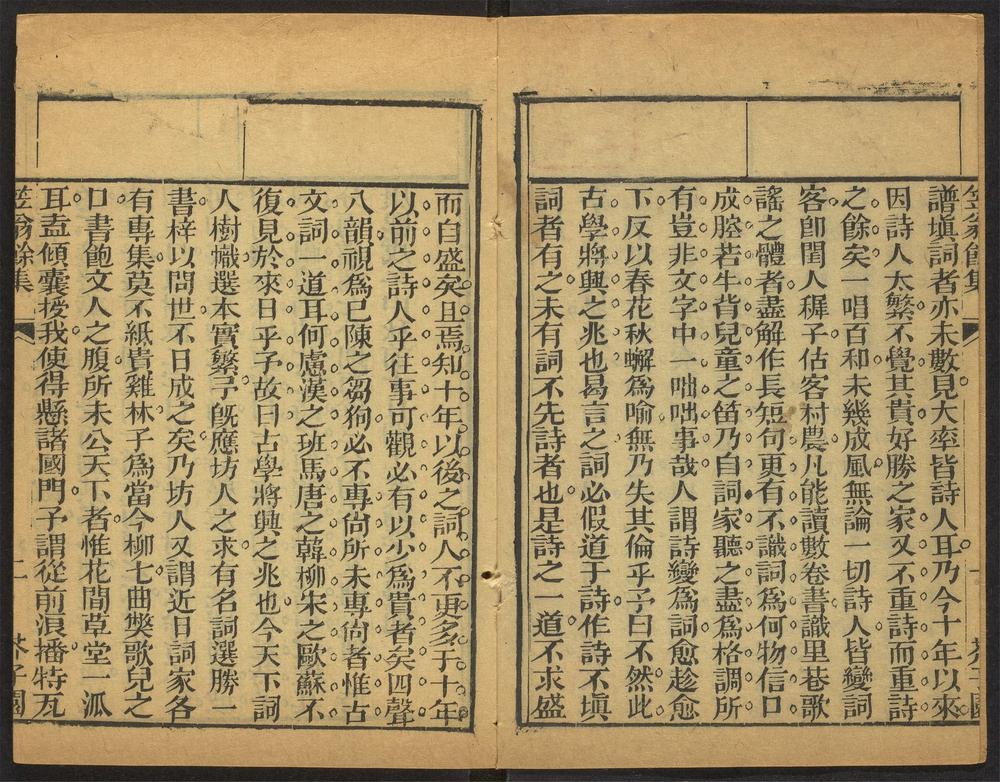 笠翁餘集
一
芥子園
譜塡詞者亦未數見大率皆詩人耳乃今十年以來
因詩人太繁不覺其貴好勝之家又不重詩而重詩
之餘矣一唱百和未幾成風無論一切詩人皆變詞
客卽閨人穉子估客村農凡能讀數卷書識里巷歌
謠之體者盡解作長短句更有不識詞爲何物信口
成腔若牛背兒童之笛乃自詞家聽之盡爲格調所
有豈非文字中一咄咄事哉人謂詩變爲詞愈趁愈
下反以春花秋蠏爲喻無乃失其倫乎予曰不然此
古學將興之兆也曷言之詞必假道于詩作詩不塡
詞者有之未有詞不先詩者也是詩之一道不求盛
而自盛矣且焉知十年以後之詞人不更多于十年
以前之詩人乎往事可觀必有以少爲貴者矣四聲
八韻視爲已陳之芻狗必不專尙所未專尙者惟古
文詞一道耳何慮漢之班馬唐之韓柳宋之歐蘇不
復見於來日乎予故曰古學將興之兆也今天下詞
人樹幟選本實繁予旣應坊人之求有名詞選勝一
書梓以問世不日成之矣乃坊人又謂近日詞家各
有專集莫不紙貴雞林子爲當今柳七曲獘歌兒之
口書飽文人之腹所未公天下者惟花間草堂一派
耳盍傾囊授我使得懸諸國門予謂從前浪播特瓦
笠翁餘集
二
芥子園